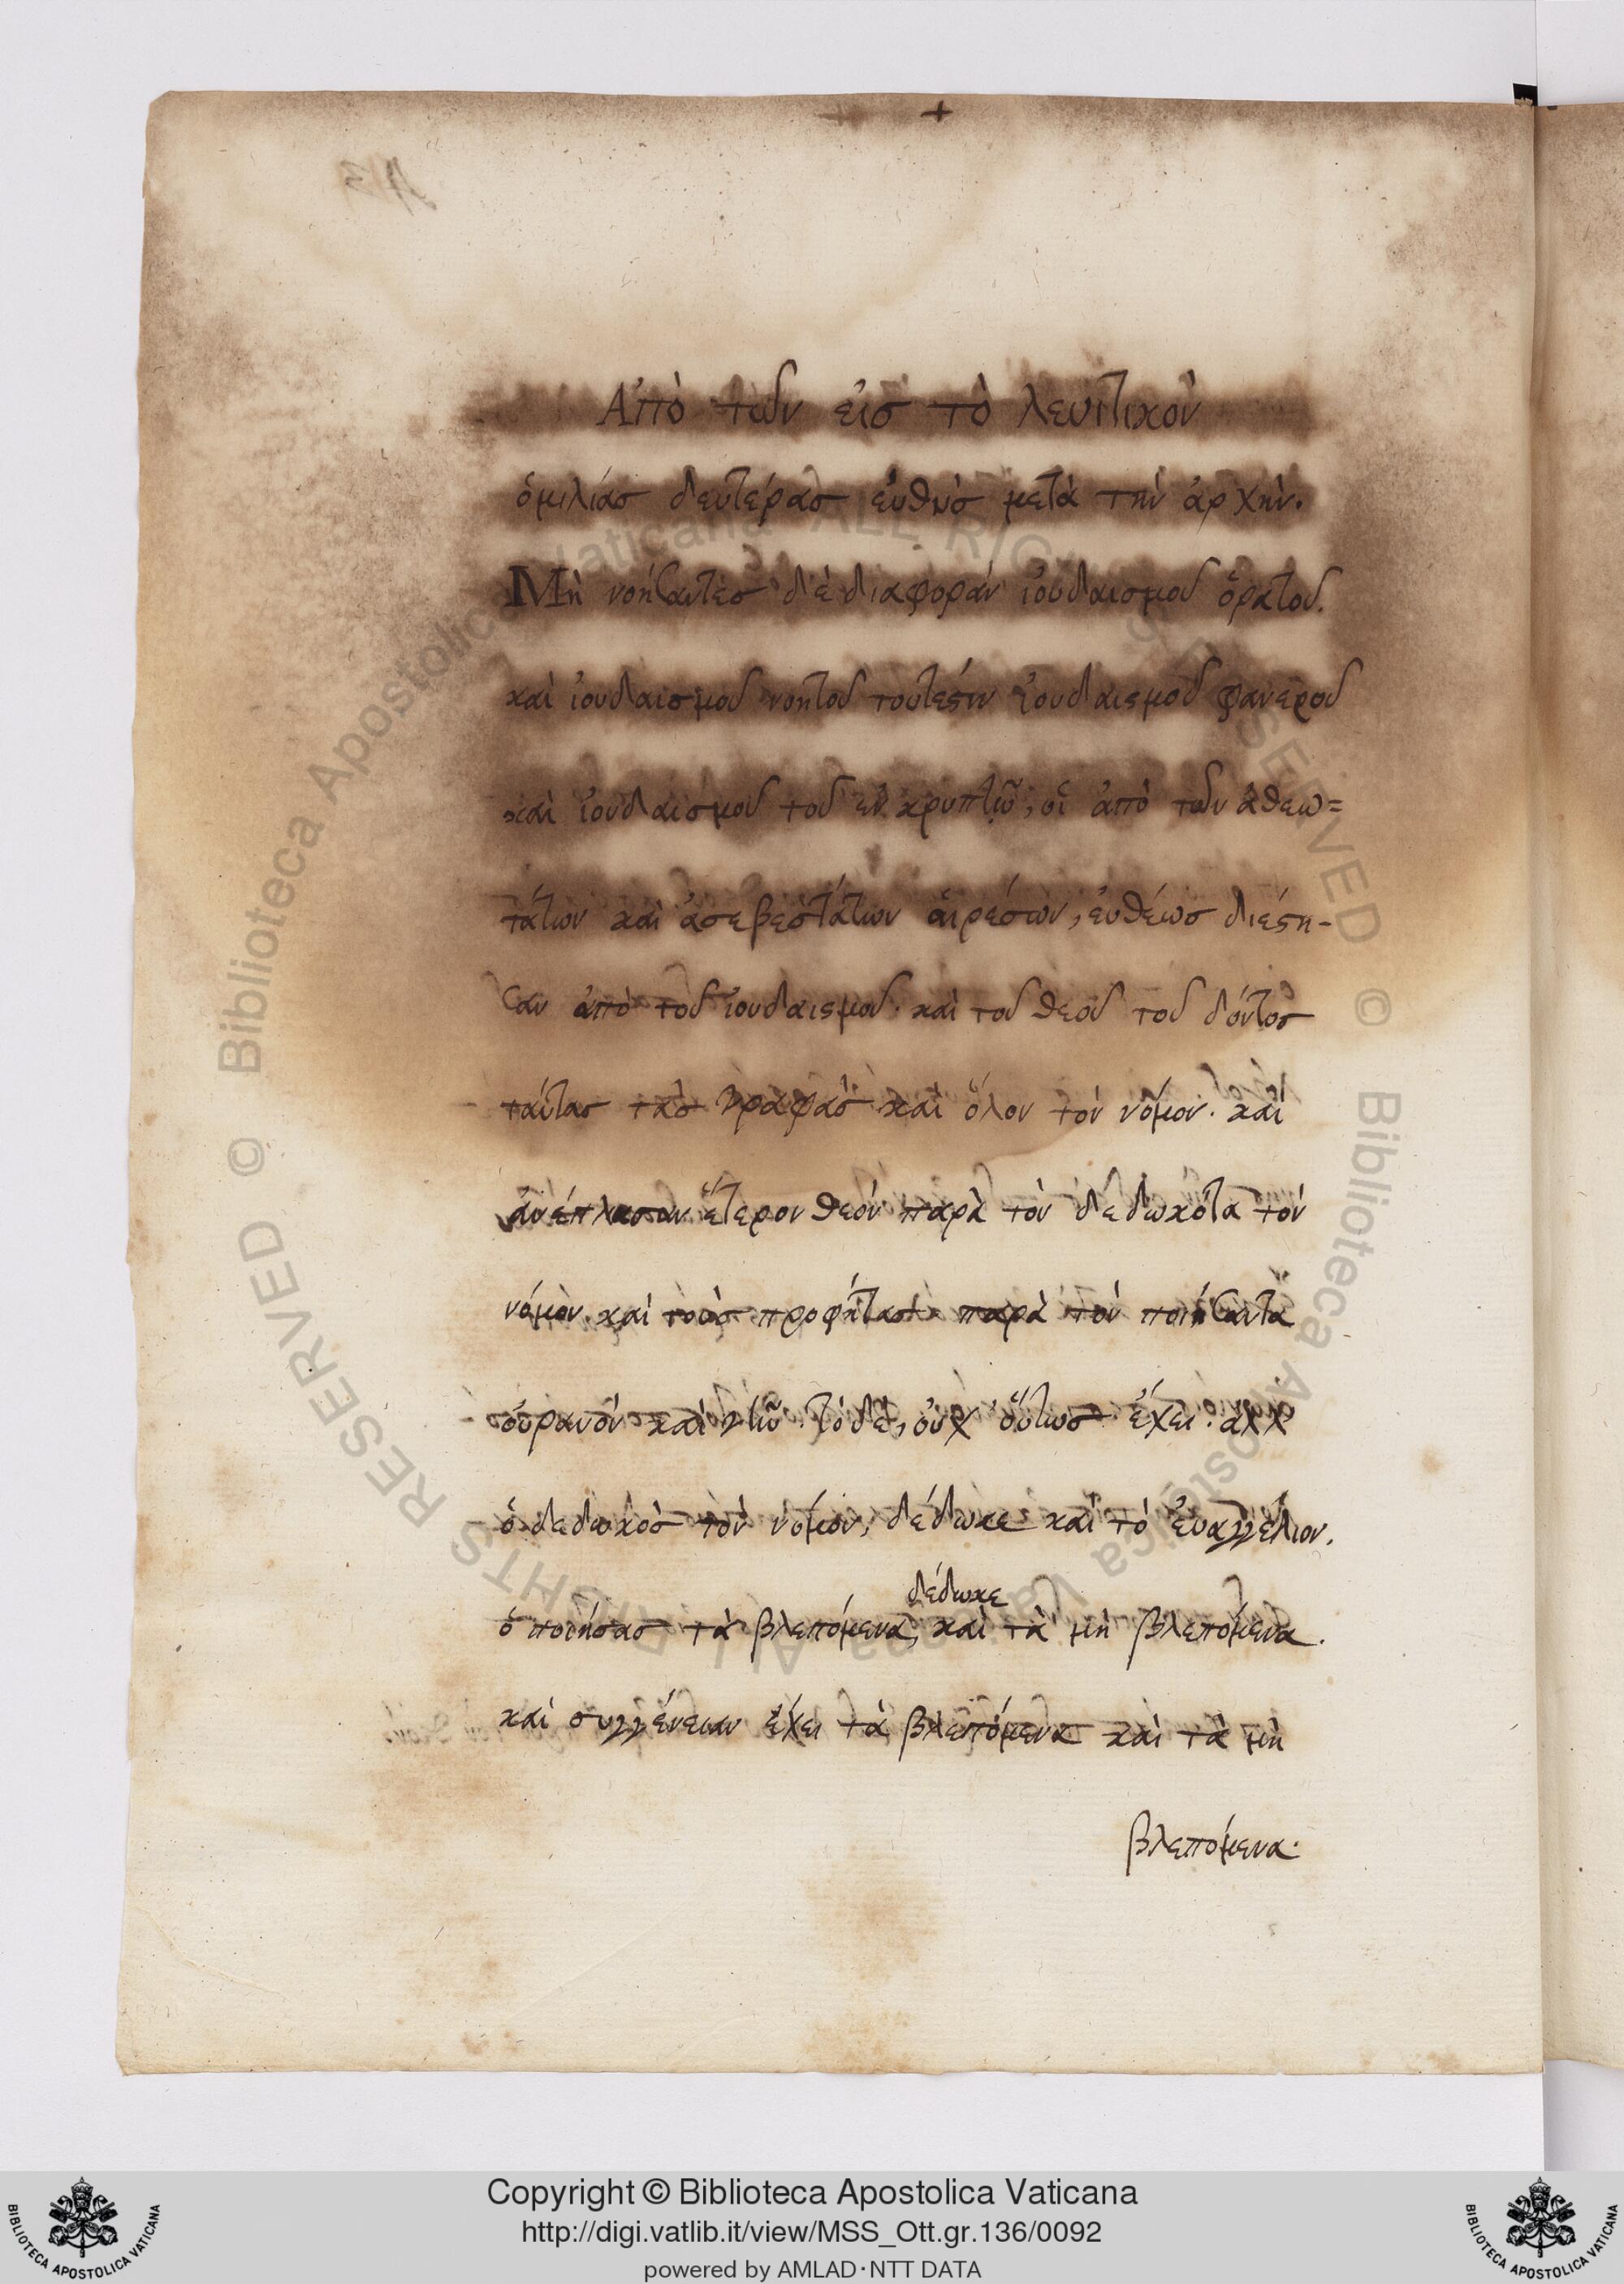 +
Ἀπὸ τῶν εἰσ τὸ λευιτικὸν
ὁμιλίασ δευτέρασ εὐθὺσ μετὰ τὴν ἀρχὴν.
Μὴ νοήσαντεσ δὲ διαφορὰν ἰουδαισμοῦ ὁρατοῦ.
καὶ ἰουδαισμοῦ νοητοῦ τουτέστιν ἰουδαισμοῦ φανεροῦ
καὶ ἰουδαισμοῦ τοῦ ἐν κρυπτῷ, οἱ ἀπὸ τῶν ἀθεω=
τάτων καὶ ἀσεβεστάτων αἱρέσεων, εὐθέωσ διέστη-
σαν ἀπὸ τοῦ ἰουδαισμοῦ· καὶ τοῦ θεοῦ τοῦ δόντοσ
ταύτασ τὰσ γραφὰσ καὶ ὅλον τὸν νόμον. καὶ
ἀνέπλασαν ἕτερον θεὸν παρὰ τὸν δεδωκότα τὸν
νόμον καὶ τοὺσ προφήτασ παρὰ τὸν ποιήσαντα
οὐρανὸν καὶ γῆν. τὸ δὲ, οὐχ οὕτωσ ἔχει. ἀλλ
ὁ δεδωκὸσ τὸν νόμον, δέδωκε καὶ τὸ ἐυαγγέλιον.
δέδωκε
ὁ ποιήσασ τὰ βλεπόμενα, καὶ τὰ μὴ βλεπόμενα.
καὶ συγγένειαν ἔχει τὰ βλεπόμενα καὶ τὰ μὴ
βλεπόμενα·
Copyright © Biblioteca Apostolica Vaticana
http://digi.vatlib.it/view/MSS_Ott.gr.136/0092
powered by AMLAD·NTT DATA
BIBLIOTECA APOSTOLICA VATICANA
BIBLIOTECA APOSTOLICA VATICANA
© Biblioteca Apostolica Vaticana ALL RIGHTS RESERVED © Biblioteca Apostolica Vaticana ALL RIGHTS RESERVED